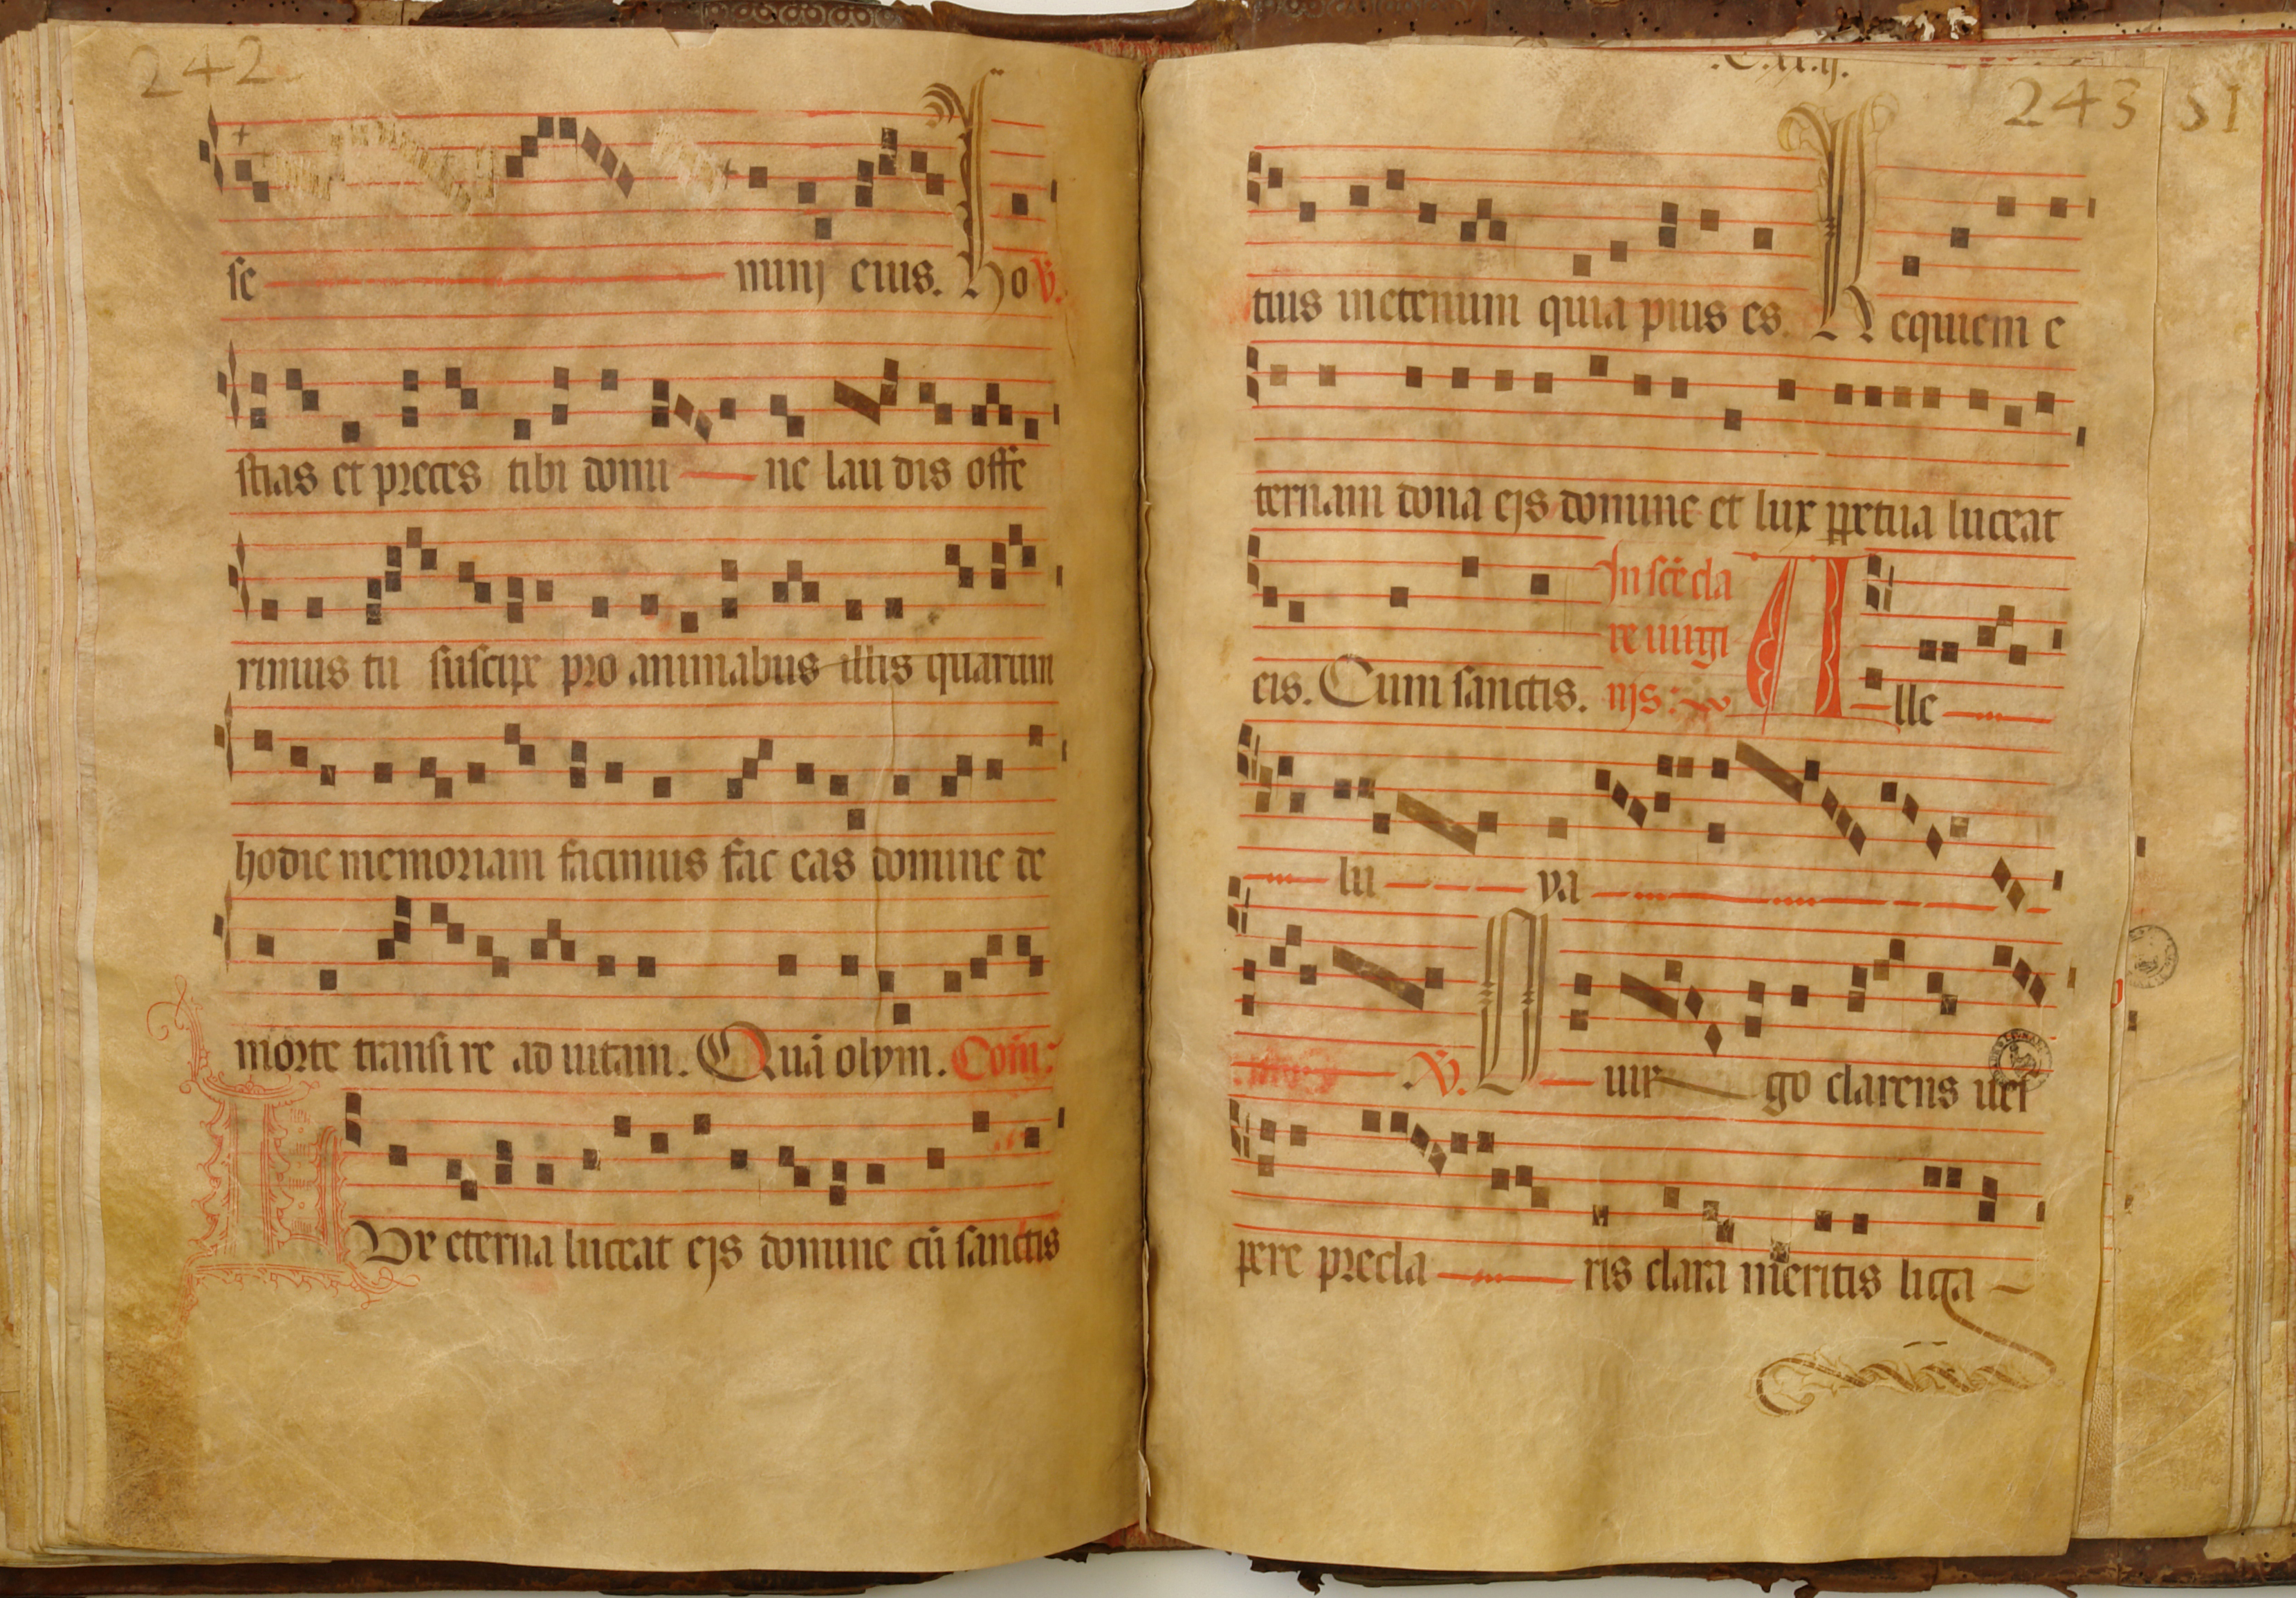 242
se minj eius. Ho V.
stias et preces tibi domi ne laudis offe
rimus tu suscipe pro animabus illis quarum
hodie memoriam facimus fac eas domine de
morte transire ad uitam. Quā olym. Com̄:
Ux eterna luceat ejs domine cū sanctis
243 51
tuis ineternum quia pius es. Requiem e
ternam dona ejs domine et lux ꝑpetua luceat
eis. Cum sanctis.
In scē cla
re uirgi
nis:
A lle
lu ya
V. O uir go clarens ues
pere precla ris clara meritis liga